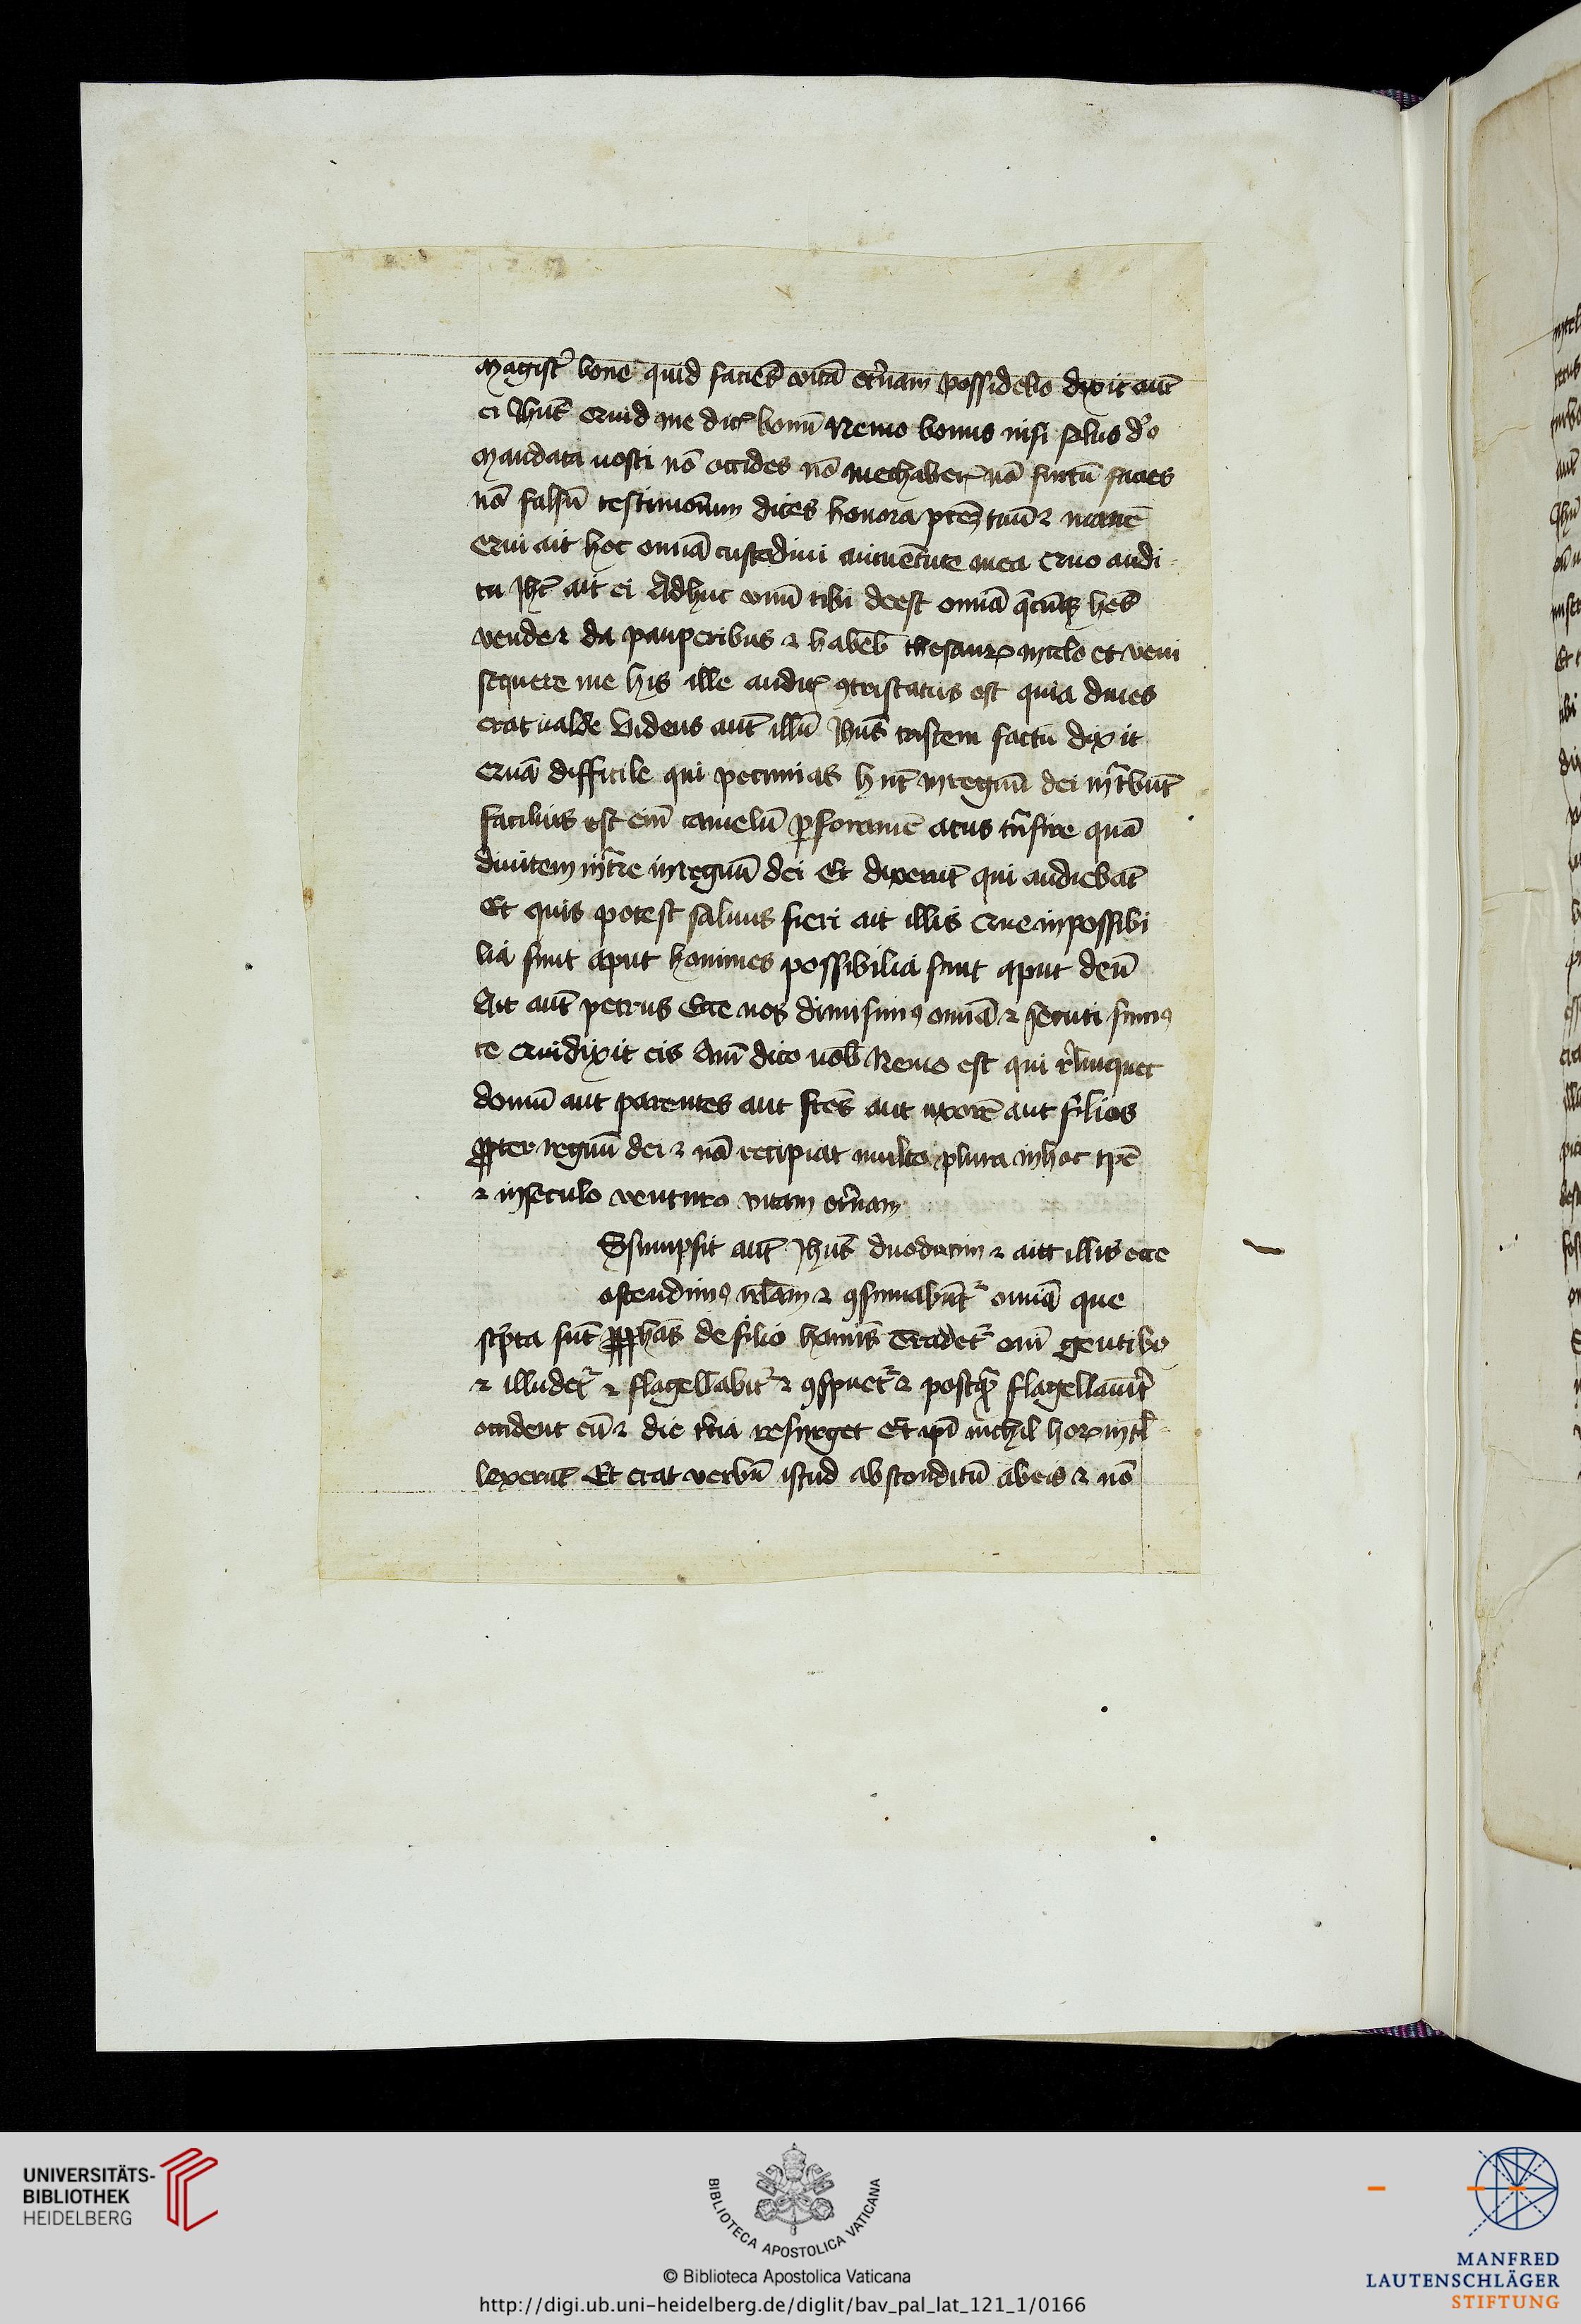 Magist̉ bone quid faciēs vitā et̉nam possidebo dixit aut̄
ei Ihus̄ Quid me dic̄ bonū Nemo bonus nisi solus d̓s
Mandata nosti nō occides nō mechaber̄ nō furtū facies
nō falsū testimoniūm dices honora pr̄eʒ tuū ⁊ matrē
Qui ait hoc omnā custodiui aiuuētute mea Quo audi
to Ihc̄ ait ei Adhuc vnū tibi deest omnā q̄cūqʒ hēs
vende ⁊ da pauperibus ⁊ habēb thesauꝝ incelo et veni
sequere me his ille audit̄ ꝯtristatus est quia diues
erat ualde Videns aut̄ illū Ihus̄ tristem factū dixit
Quā difficile qui pecunias hn̄t inregnū dei intͣbūt
facilius est em̄ camelū ꝑ foramē acus trͣnsire quā
diuitem intͣre inregnū dei Et dixerūt qui audiebāt
Et quis potest saluus fieri ait illis Que inpossibi
lia sunt aput homines possibilia sunt aput deū
Ait aut̄ petrus Ecce nos dimisimꝰ omnā ⁊ secuti sumꝰ
te Qui dixit eis Am̄ dico uob̄ Nemo est qui rel̄inquet
domū aut parentes aut fr̄es aut uxorē aut filios
ꝓpter regnū dei ⁊ nō recipiat multo plura inhoc tꝑe
⁊ inseculo venturo vitam et̉nam
Ssumpsit aut̄ Ihus̄ duodecim ⁊ aitt illis ecce
ascendimꝰ irl̄am ⁊ ꝯsumabūtᷣ omnā que
scͥpta sūt ꝑ ꝓphās de filio homīs Tradetᷣ em̄ gentibꝰ
⁊ illudetᷣ ⁊ flagellabitᷣ ⁊ ꝯspuetᷣ ⁊ postqͣ flagellauīt
occident eū ⁊ die t̉cia resurget Et ip̄i nichil hoꝝ intel̄
lexerūt Et erat verbū istud absconditū abeis ⁊ nō
UNIVERSITÄTS-
BIBLIOTHEK
HEIDELBERG
BIBLIOTECA APOSTOLICA VATICANA
© Biblioteca Apostolica Vaticana
http://digi.ub.uni-heidelberg.de/diglit/bav_pal_lat_121_1/0166
MANFRED
LAUTENSCHLÄGER
STIFTUNG